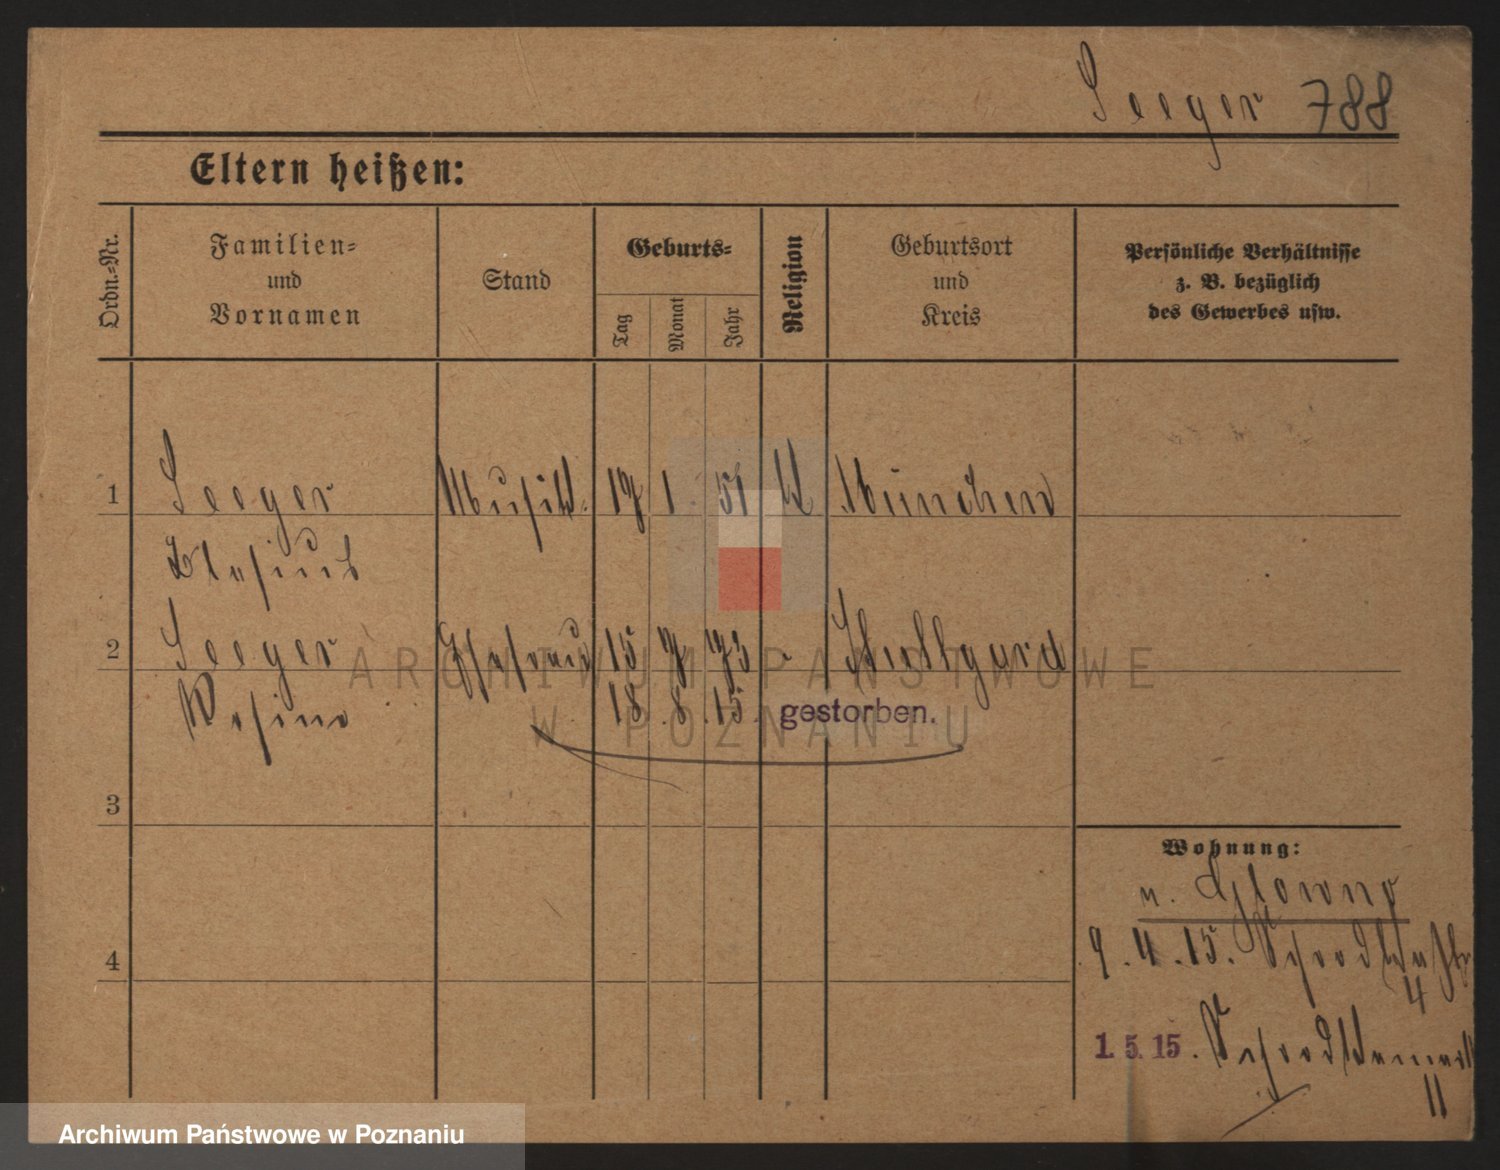 Seeger 788
Eltern heißen:
Ordn.=Nr.
Familien=
und
Vornamen
Stand
Geburts=
Tag
Monat
Jahr
Religion
Geburtsort
und
Kreis
Persönliche Verhältnisse
z. B. bezüglich
des Gewerbes usw.
1 Seeger 1 51 München
Blasius
2 Seeger Ehefrau 15 73
Rosine 18.8.15. gestorben.
3
4
Wohnung:
n. Glowno
9.4.15.
4
1.5.15.
11
ARCHIWUM PAŃSTWOWE
W POZNANIU
Archiwum Państwowe w Poznaniu